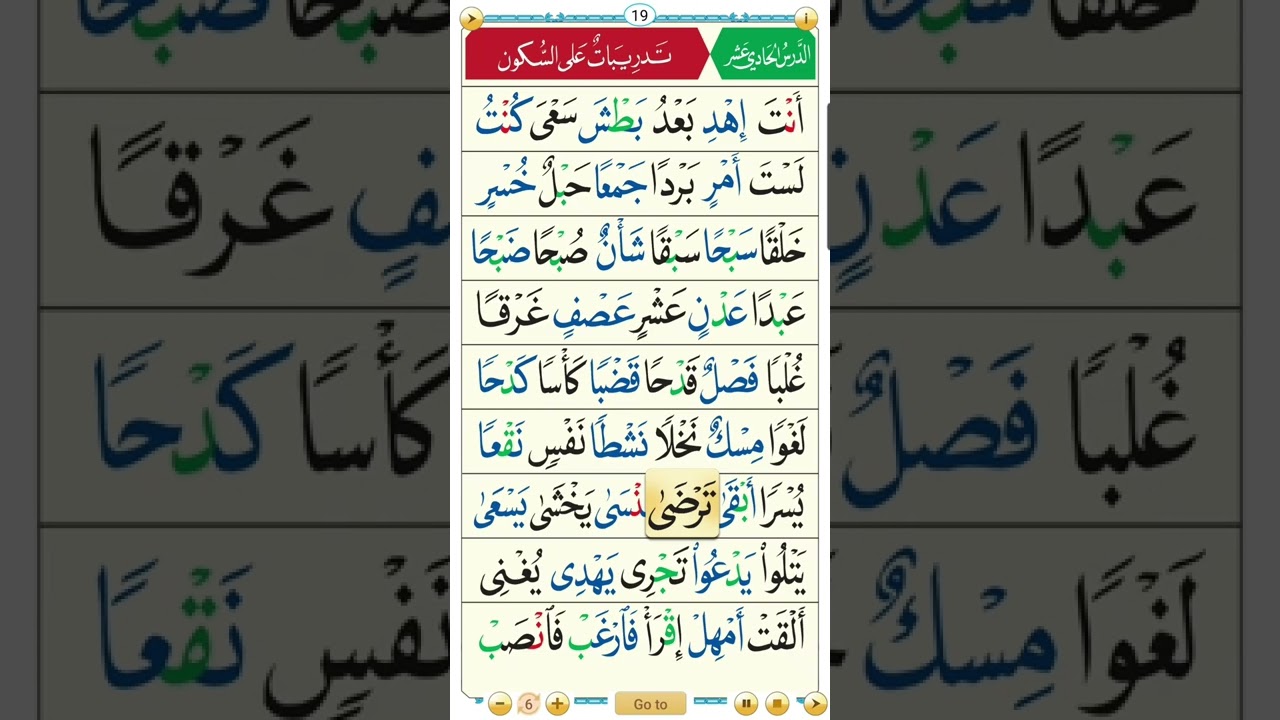 19
الدَّرْسُ الحَادِي عَشَر
تَدرِيبَاتٌ عَلى السُّكون
أَنْتَ إِهْدِ بَعْدُ بَطْشَ سَعْىَ كُنْتُ
لَسْتَ أَمْرٍ بَرْدًا جَمْعًا حَبْلٌ خُسْرٍ
خَلْقًا سَبْحًا سَبْقًا شَأْنٌ صُبْحًا ضَبْحًا
عَبْدًا عَدْنٍ عَشْرٍ عَصْفٍ غَرْقًا
غُلْبًا فَصْلٌ قَدْحًا قَضْبًا كَأْسًا كَدْحًا
لَغْوًا مِسْكٌ نَخْلًا نَشْطًا نَفْسٍ نَقْعًا
يُسْرًا أَبْقَىٰ تَرْضَىٰ نْسَىٰ يَخْشَىٰ يَسْعَىٰ
يَتْلُوا۟ يَدْعُوا۟ تَجْرِى يَهْدِى يُغْنِى
أَلْقَتْ أَمْهِلْ إِقْرَأْ فَٱرْغَبْ فَٱنْصَبْ
6
Go to
عَبْدًا عَدْنٍ
فٍ غَرْقًا
غُلْبًا فَصْلٌ
كَأْسًا كَدْحًا
لَغْوًا مِسْكٌ
نَفْسٍ نَقْعًا